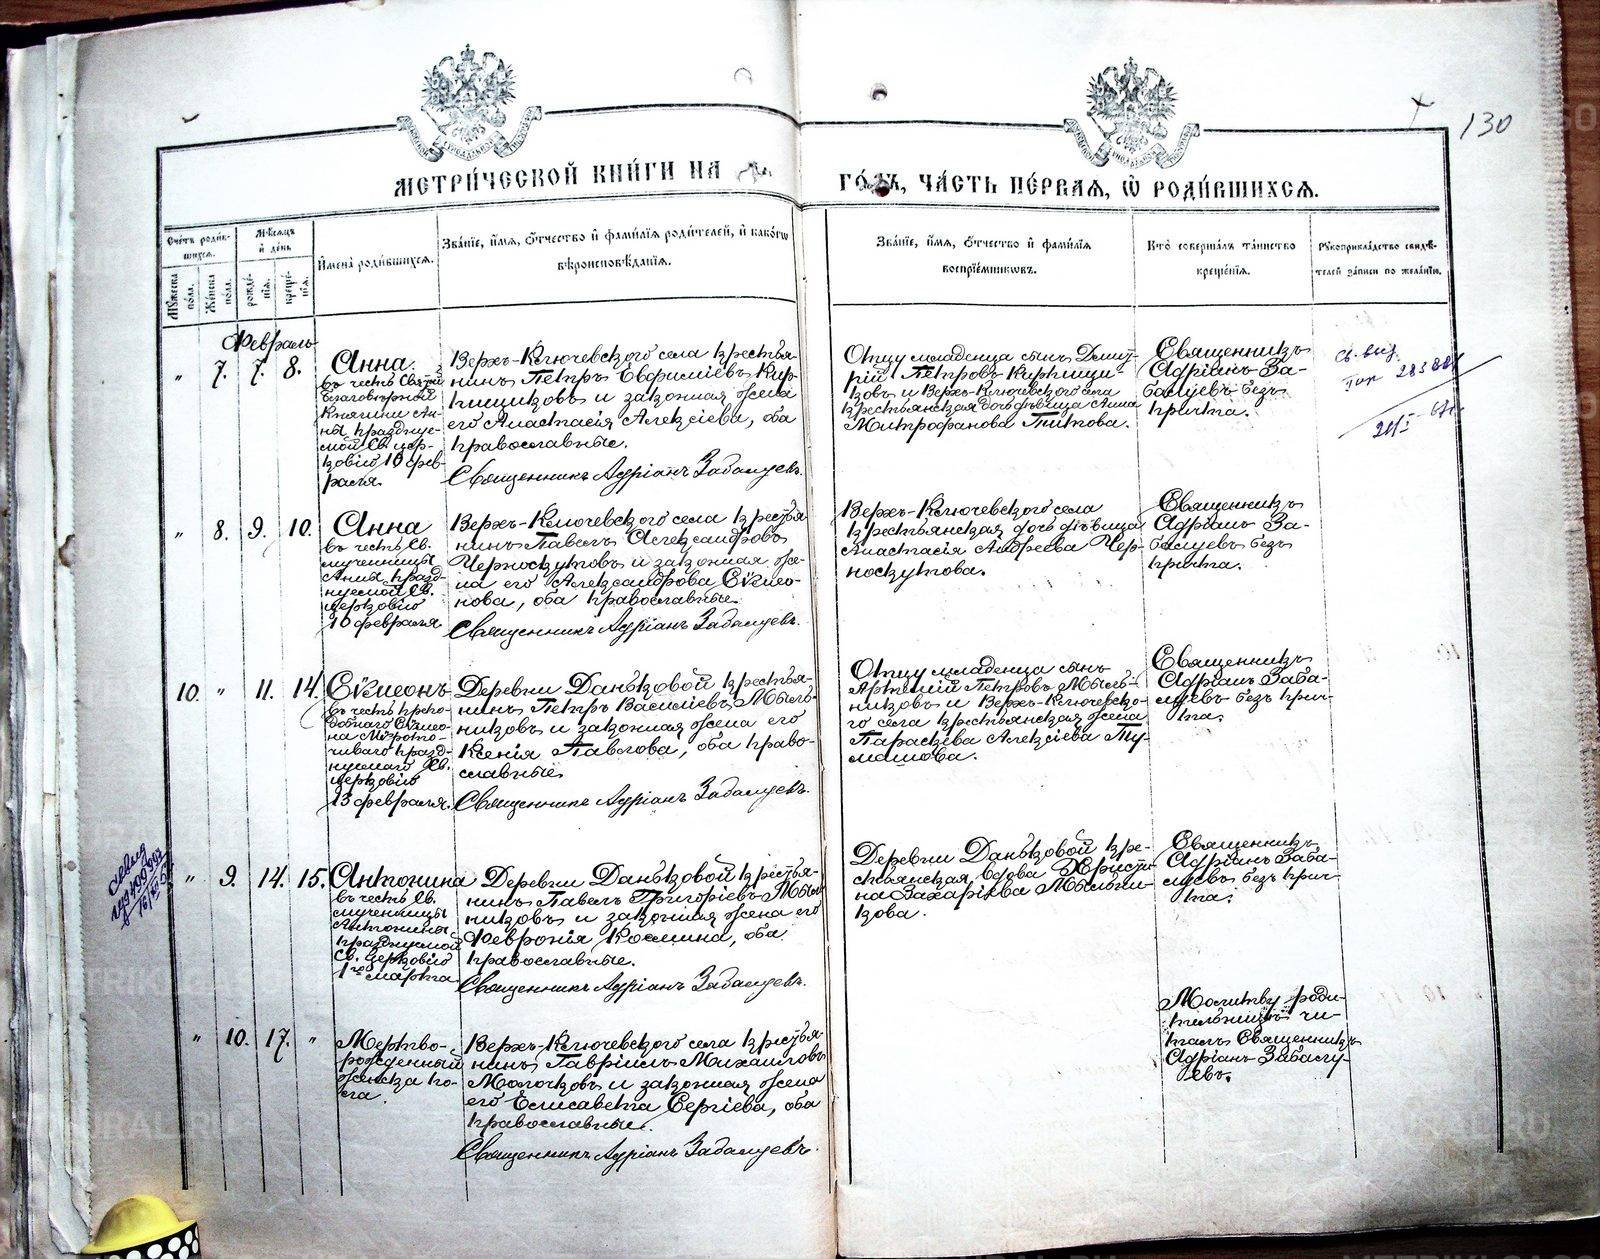 130
МЕТРИ́ЧЕСКОЙ КНИ́ГИ НА
ГО́ДЪ, ЧА́СТЬ ПЕ́РВАЯ, Ѡ РОДИ́ВШИХСЯ.
Сче́тъ роди́в-
шихся.
Мѣ́сяцъ
и де́нь
Му́жеска по́ла.
Же́нска по́ла.
рожде́-
нія.
креще́-
нія.
И́мена роди́вшихся.
Зва́ніе, и́мя, о́тчество и фами́лія роди́телей, и како́гѡ
вѣроисповѣ́данія.
Зва́ніе, и́мя, о́тчество и фами́лія
воспріе́мниковъ.
Кто̀ соверша́лъ та́инство
креще́нія.
Рукоприкла́дство свидѣ́-
телей за́писи по жела́нію.
Февраль
„ 7. 7. 8.
Анна
въ честь Святой
Благовѣрной
Княгини Ан-
ны празднуе-
мой Св. цер-
ковію 10 фев-
раля.
Верхъ-Ключевского села крестья-
нинъ Петръ Евфиміевъ Кир-
пищиковъ и законная жена
его Анастасія Алексіева, оба
православные.
Священникъ Адріанъ Забалуевъ.
Отцу младенца сынъ Дмит-
рій Петровъ Кирпищи-
ковъ и Верхъ-Ключевского села
крестьянская дочь дѣвица Анна
Митрофанова Титова.
Священникъ
Адріанъ За-
балуевъ безъ
причта.
Св. выд.
„ 8. 9. 10.
Анна
въ честь Св.
мученницы
Анны празд-
нуемой Св.
церковію
10 февраля.
Верхъ-Ключевского села крестья-
нинъ Павелъ Александровъ
Черноскутовъ и законная же-
на его Александрова Сѵмео-
нова, оба православные.
Священникъ Адріанъ Забалуевъ.
Верхъ-Ключевского села
крестьянская дочь дѣвица
Анастасія Андреева Чер-
носкутова.
Священникъ
Адріанъ За-
балуевъ безъ
причта.
10. „ 11. 14.
Сѵмеонъ
въ честь препо-
добнаго Сѵмео-
на Мѵрото-
чиваго празд-
нуемаго Св.
церковію
13 февраля.
Деревни Даньковой крестья-
нинъ Петръ Василіевъ Мыль-
никовъ и законная жена его
Ксенія Павлова, оба право-
славные.
Священникъ Адріанъ Забалуевъ.
Отцу младенца сынъ
Артемій Петровъ Мыль-
никовъ и Верхъ-Ключевско-
го села крестьянская жена
Параскева Алексіева Ту-
машова.
Священникъ
Адріанъ Заба-
луевъ безъ прич-
та.
„ 9. 14. 15.
Антонина
въ честь Св.
мученницы
Антонины
празднуемой
Св. церковію
1го марта
Деревни Даньковой крестья-
нинъ Павелъ Григоріевъ Мыль-
никовъ и законная жена его
Февронія Космина, оба
православные.
Священникъ Адріанъ Забалуевъ.
Деревни Даньковой кре-
стьянская вдова Христи-
на Захаріева Мыльни-
кова.
Священникъ
Адріанъ Заба-
луевъ безъ прич-
та.
„ 10. 17. „
Мертво-
рожденный
женска по-
ла.
Верхъ-Ключевского села крестья-
нинъ Гавріилъ Михаиловъ
Молочковъ и законная жена
его Елисавета Сергіева, оба
православные.
Священникъ Адріанъ Забалуевъ.
Молитву роди-
тельницѣ чи-
талъ Священникъ
Адріанъ Забалу-
евъ.